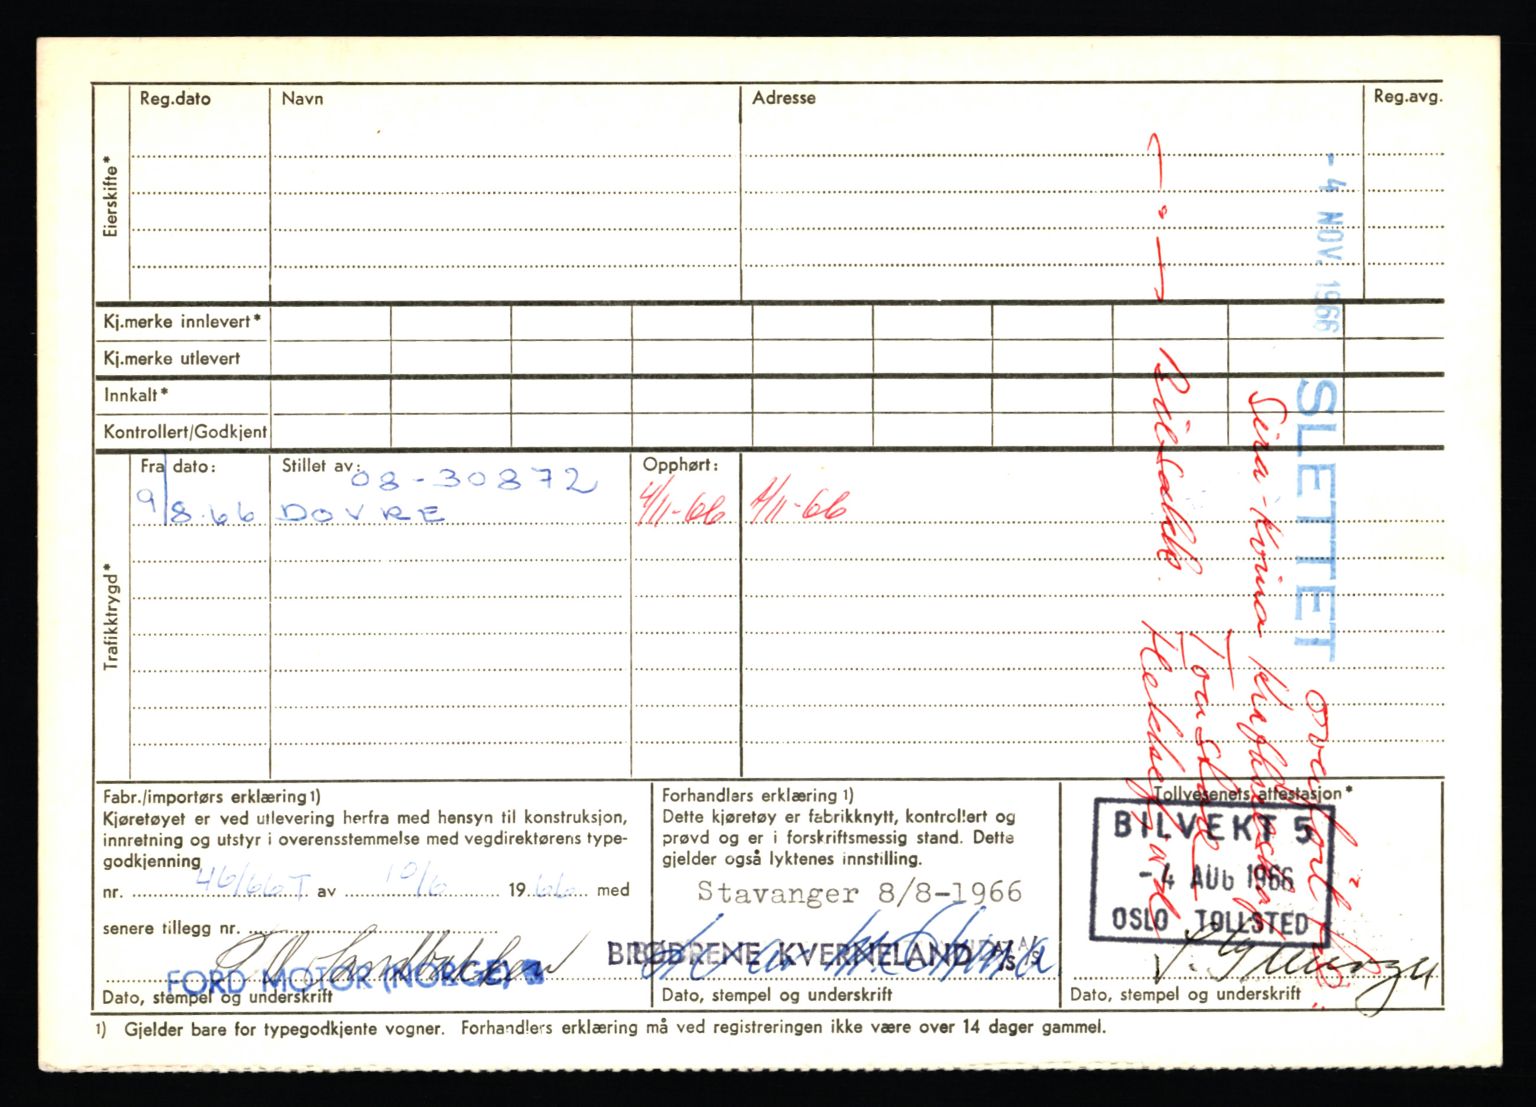 Reg.dato Navn Adresse Reg.avg.
Eierskifte*
- 4 NOV. 1966
Kj.merke innlevert*
Kj.merke utlevert
Innkalt*
Kontrollert/Godkjent
SLETTET
Fra dato: Stillet av: 08-30872 Opphørt:
9/8-66 DOVRE 4/11-66 4/11-66
Trafikktrygd*
Sira-Kvina Kraftselskap
Tonstad
Fabr./importørs erklæring 1)
Kjøretøyet er ved utlevering herfra med hensyn til konstruksjon,
innretning og utstyr i overensstemmelse med vegdirektørens type-
godkjenning
nr. 46/66T av 10/6 1966 med
senere tillegg nr.
FORD MOTOR (NORGE)
Dato, stempel og underskrift
Forhandlers erklæring 1)
Dette kjøretøy er fabrikknytt, kontrollert og
prøvd og er i forskriftsmessig stand. Dette
gjelder også lyktenes innstilling.
Stavanger 8/8-1966
BRØDRENE KVERNELAND A/S
Dato, stempel og underskrift
Tollvesenets attestasjon*
BILVEKT 5
- 4 AUG 1966
OSLO TOLLSTED
Dato, stempel og underskrift
1) Gjelder bare for typegodkjente vogner. Forhandlers erklæring må ved registreringen ikke være over 14 dager gammel.